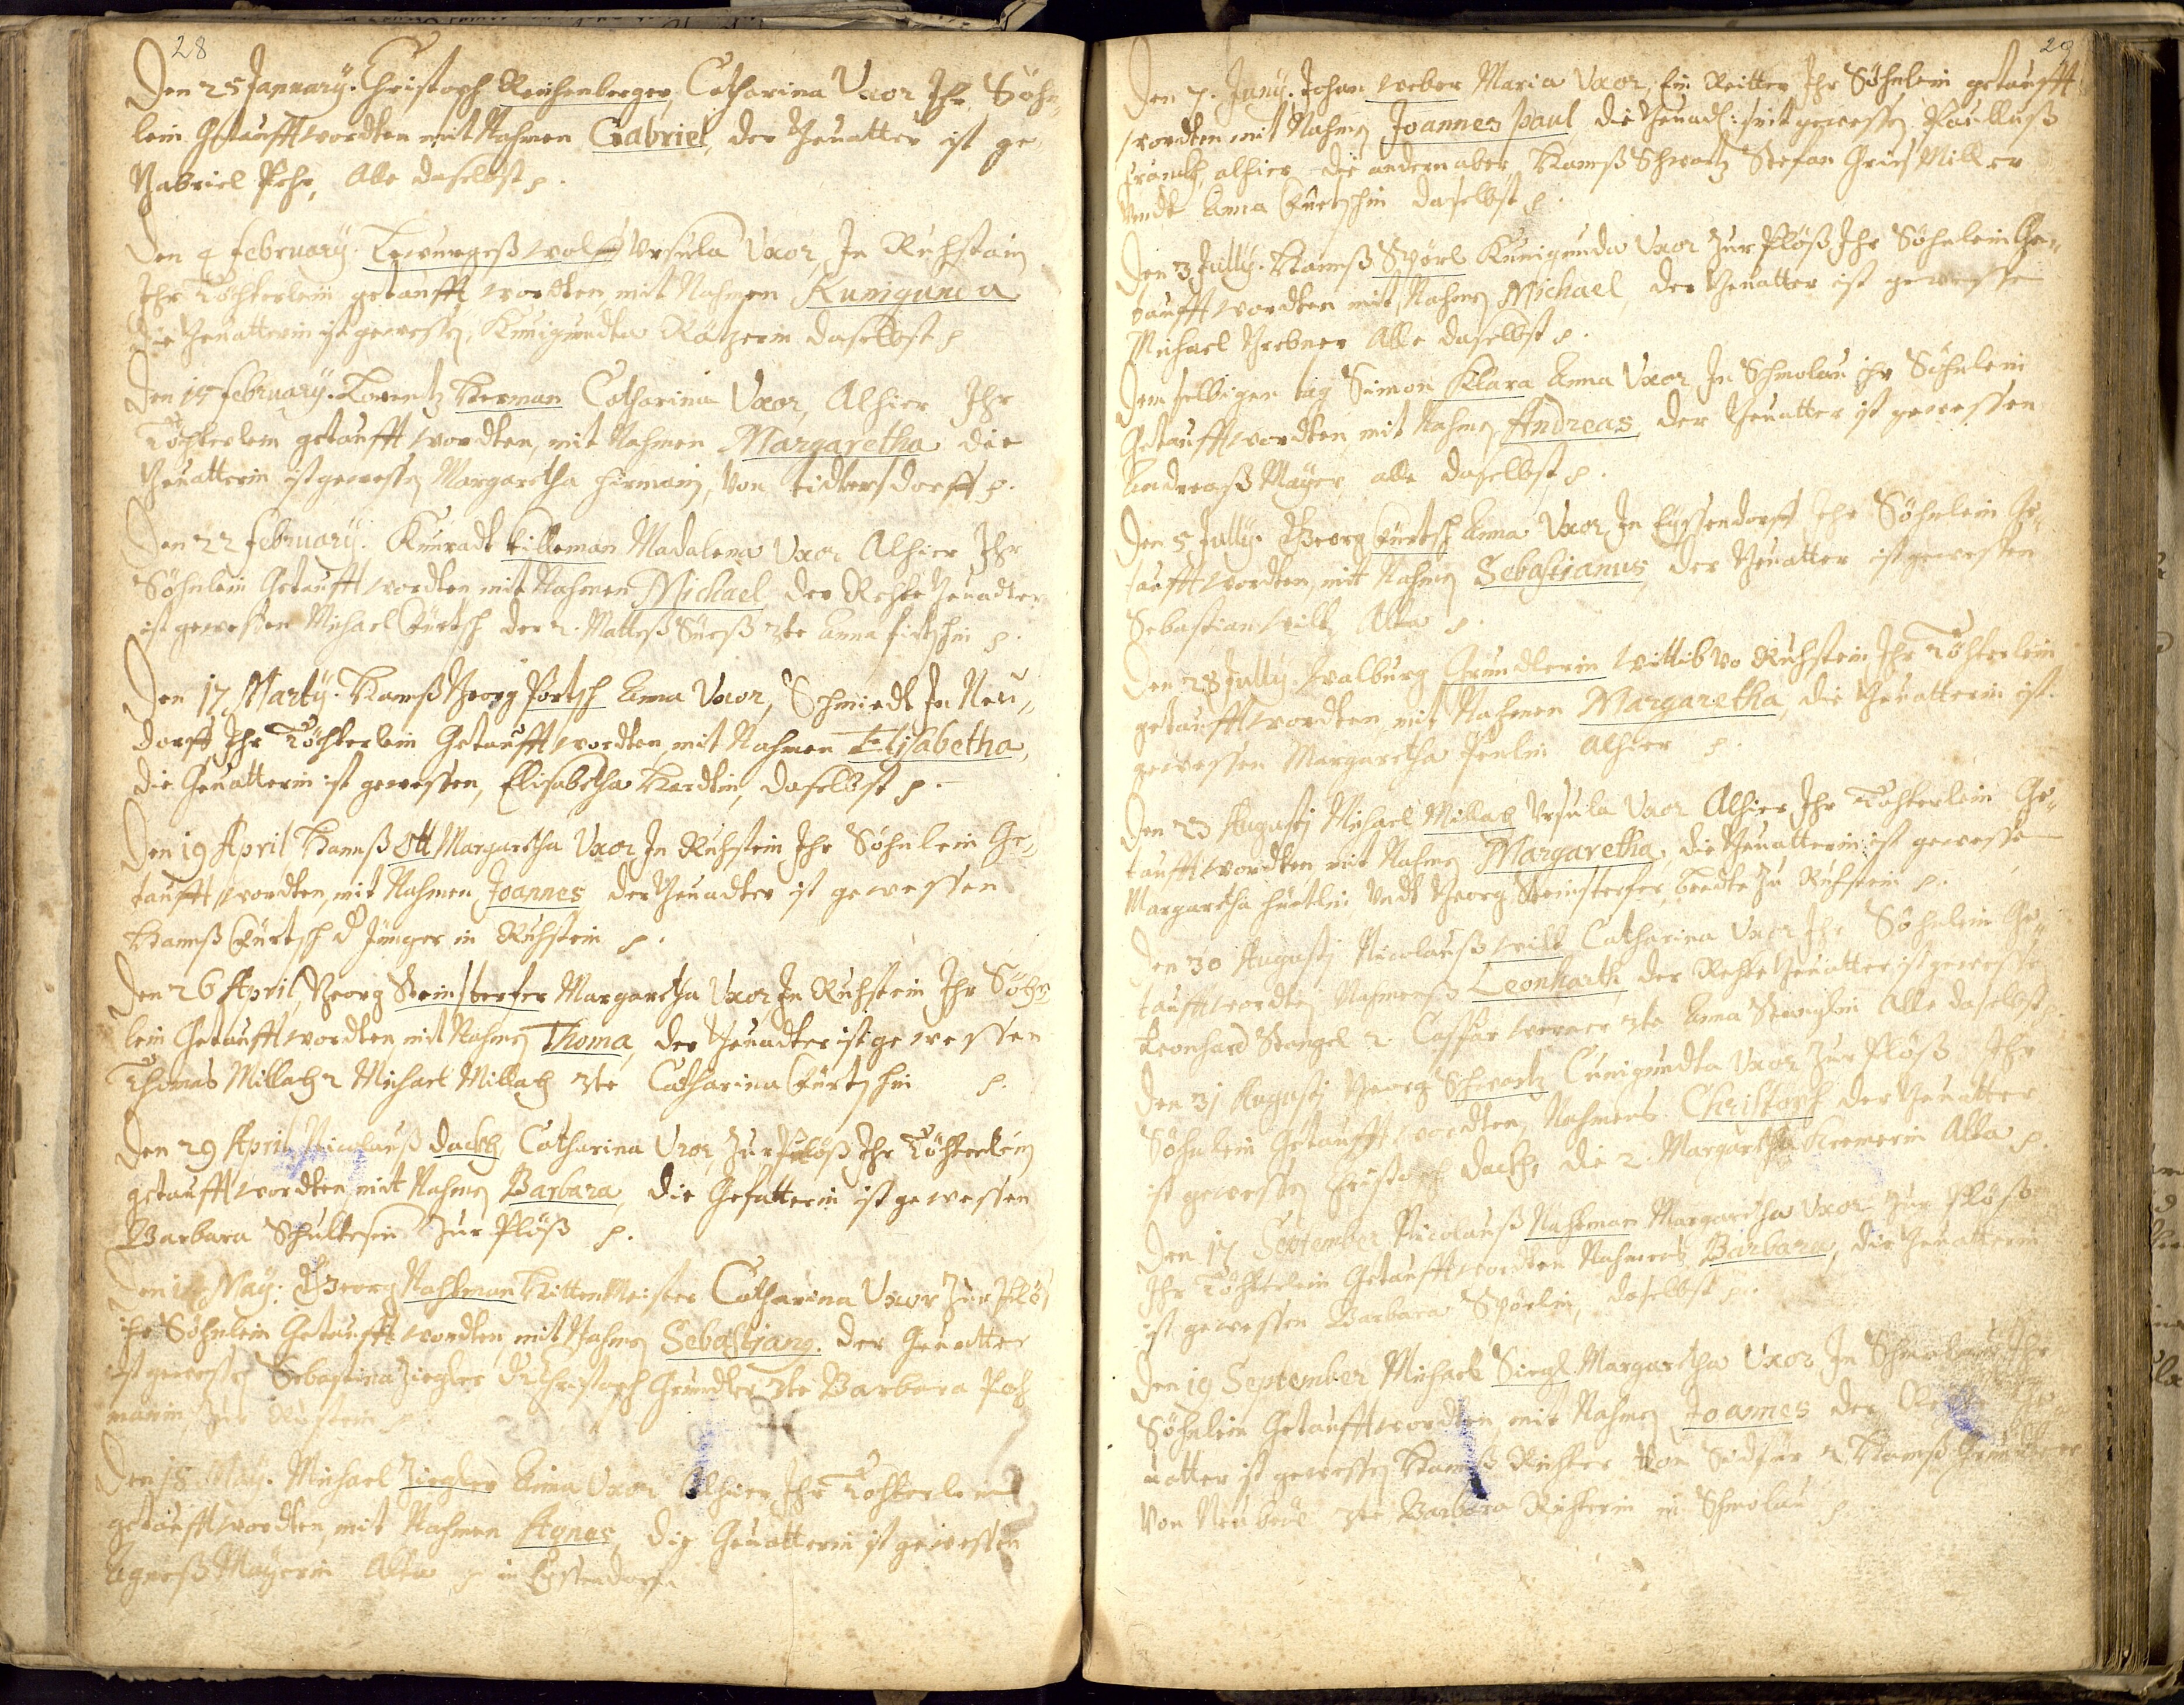 28
Den 25 January. Christoph Reichenberger, Catharina Uxor Ihr Söhn¬
lein Getaufft wordten mit Nahmen Gabriel, der Geuatter ist ge
Gabriel Fehr, Alle daselbst p.
Den 4 february. Wolff Ursula Uxor, In Ruhstain
Ihr Töchterlein getaufft wordten mit Nahmen Kunigunda
die Geuatterin ist gewessen, Kunigundta daselbst p
Den 15 february. Lorentz Herman Catharina Uxor, Alhier Ihr
Töchterlein getaufft wordten, mit Nahmen Margaretha die
Geuatterin ist gewessen Margaretha von p.
Den 22 february. Kunradt Madalena Uxor Alhier Ihr
Söhnlein Getaufft wordten mit Nahmen Michael der Rechte Geuadter
ist gewessen Michael Gürtsch der 2. Matteß 3te Anna p.
Den 17 Marty. Hanß Georg Portsch Anna Uxor, Schmiedt In Neu¬
dorff Ihr Töchterlein Getaufft wordten mit Nahmen Elisabetha,
die Geuatterin ist gewessen, Elisabetha daselbst p.
Den 19 April Hanß Ott Margaretha Uxor In Ruhstein Ihr Söhnlein Ge¬
taufft wordten, mit Nahmen Joannes der Geuadter ist gewessen
Hanß Gürtsch d Jünger in Ruhstein p.
Den 26 April, Georg Steinsterfer Margaretha Uxor, In Ruhstein Ihr Söhn
lein Getaufft wordten mit Nahmen Thoma, der Geuadter ist gewessen
Thomas Millach 2 Michael Millach 3te Catharina Gürtschin p.
Den 29 April, Nicolauß Dackh Catharina Uxor, Zur Flöß Ihr Töchterlein
getaufft wordten mit Nahmen Barbara, die Gefatterin ist gewessen
Barbara Schultesin Zur Flöß p.
Den May: Georg Nachtman HittenMeister Catharina Uxor Zur Flöß
ihr Söhnlein Getaufft wordten mit Nahmen Sebastjang. der Geuatter
ist gewessen Ziegler Christoph Gründler 3te Barbara
manin Zur Rustein p
Den 18 May. Michael Ziegler Anna Uxor Alhier Ihr Töchterlein
getaufft wordten, mit Nahmen Agnes, die Geuatterin ist gewessen
Agneß Mayerin Alda p in Eyssendorf.
29
Den 7. Juny. Johan Weber Maria Uxor, Ein Reitter Ihr Söhnlein getaufft
wordten mit Nahmen Joannes paul die Geuad: seit gewessen Paulluß
Franckh, alhier die andern aber Hanß Schwartz Stefan Griesmiller
Undt Anna Gürtschin daselbst p.
Den 3 July. Hanß Spörl Kunigunda Uxor Zur Flöß Ihr Söhnlein Ge¬
taufft wordten mit Nahmen Michael, der Geuatter ist gewesse
Michael Grebner Alle daselbst p.
Dem selbigen tag Simon Klara Anna Uxor In Schmolau ihr Söhnlein
Getaufft wordten, mit Nahmen Andreas, der Geuatter ist gewessen
Andreaß Mayer alle daselbst p.
Den 5 July. Georg Gürtsch Anna Uxor, In Eyssendorff Ihr Söhnlein Ge¬
taufft wordten, mit Nahmen Sebastjanus, der Geuatter ist gewessen
Sebastian Wilt, Alda p.
Den 28 July. Walburg Gründlerin Wittib vo Ruhstein Ihr Töchterlein
getaufft wordten mit Nahmen Margaretha, die Geuatterin ist
gewessen Margaretha Alhier p.
Den 23 Augustj Michael Millach Ursula Uxor Alhier Ihr Töchterlein Ge¬
taufft wordten mit Nahmen Margaretha, die Geuatterin ist gewesse
Margaretha Undt Georg Steinsterfer, beedte Zu Ruhstein p.
Den 30 Augustj Nicolauß Wilt Catharina Uxor Ihr Söhnlein Ge¬
taufft wordten, Nahmenß Leonharth, der Rechte Geuatter ist gewessen
Leonhard Stangel 2. Caspar 3te Anna Stenglin Alle daselbst p.
Den 31 Augustj Georg Schwartz Cunigundta Uxor Zur Flöß Ihr
Söhnlein Getaufft wordten, Nahmens Christoph der Geuatter
ist gewessen Christoph Dackh, die 2. Margaretha Kremerin Alda p.
Den 17 September Nicolauß Nachtman Margaretha Uxor Zur Flöß
Ihr Töchterlein Getaufft wordten Nahmens Barbara, die Geuatterin
ist gewessen Barbara Spörlin, daselbst p.
Den 19 September Michael Siegl Margaretha Uxor In Schmolau Ihr
Söhnlein Getaufft wordten, mit Nahmen Joannes der Rechte Ge¬
uatter ist gewessen Hanß Richter von 2 Hanß
Von 3te Barbara Richterin in Schmolau p